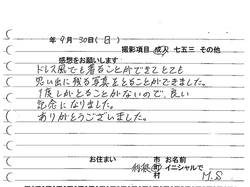 年 9月 30日(日)
撮影項目 成人 七五三 その他
感想をお願いします
ドレス風でも着ることができてとても
思い出に残る写真をとることができました。
1度しかとることがないので、良い
記念になりました。
ありがとうございました。
お住まい 市 お名前
町 イニシャルで
村 M.S